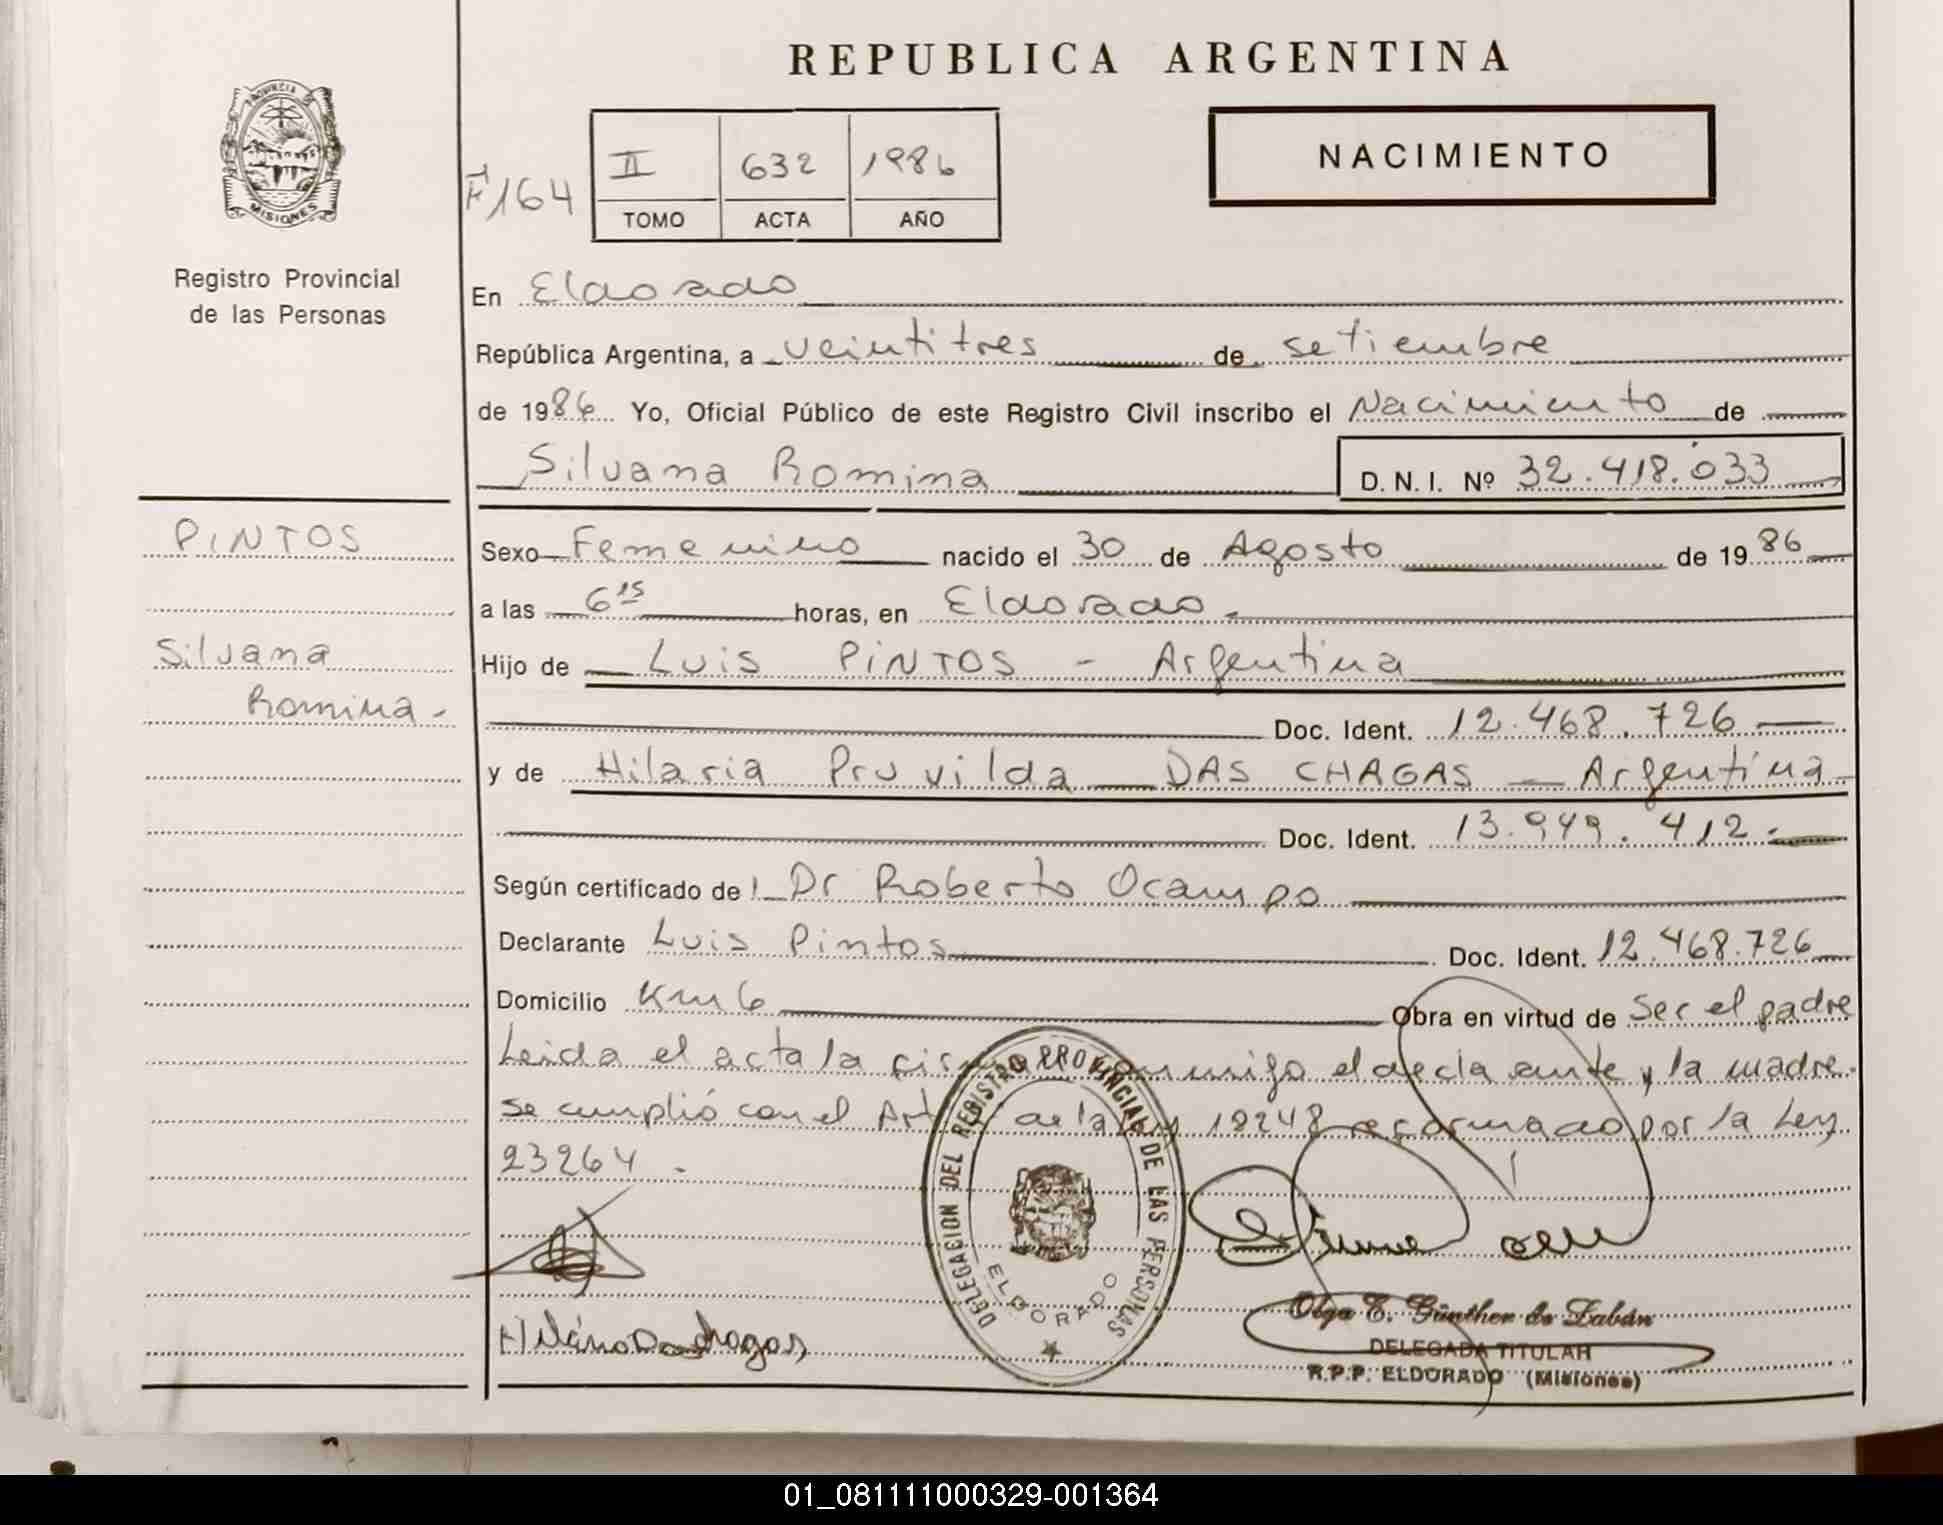 REPUBLICA ARGENTINA
PROVINCIA DE
MISIONES
Registro Provincial
de las Personas
F 164
II 632 1986
TOMO ACTA AÑO
NACIMIENTO
En Eldorado
República Argentina, a veintitres de setiembre
de 1986 Yo, Oficial Público de este Registro Civil inscribo el Nacimiento de
Silvana Romina D. N. I. Nº 32.418.033
PINTOS
Silvana
Romina -
Sexo Femenino nacido el 30 de Agosto de 1986
a las 6 15 horas, en Eldorado.
Hijo de Luis PINTOS - Argentina
Doc. Ident. 12.468.726
y de Hilaria Pruvilda DAS CHAGAS - Argentina
Doc. Ident. 13.949.412.-
Según certificado de l Dr Roberto Ocampo
Declarante Luis Pintos Doc. Ident. 12.468.726
Domicilio Km 6 Obra en virtud de Ser el padre
Leida el acta la conmigo el declarante y la madre.
se cumplió con el Art de la Ley 18248 reformado por la Ley
23264.
DELEGACION DEL REGISTRO PROVINCIAL DE LAS PERSONAS
ELDORADO
Olga E. Günther de Zabán
DELEGADA TITULAR
R.P.P. ELDORADO (Misiones)
01_081111000329-001364